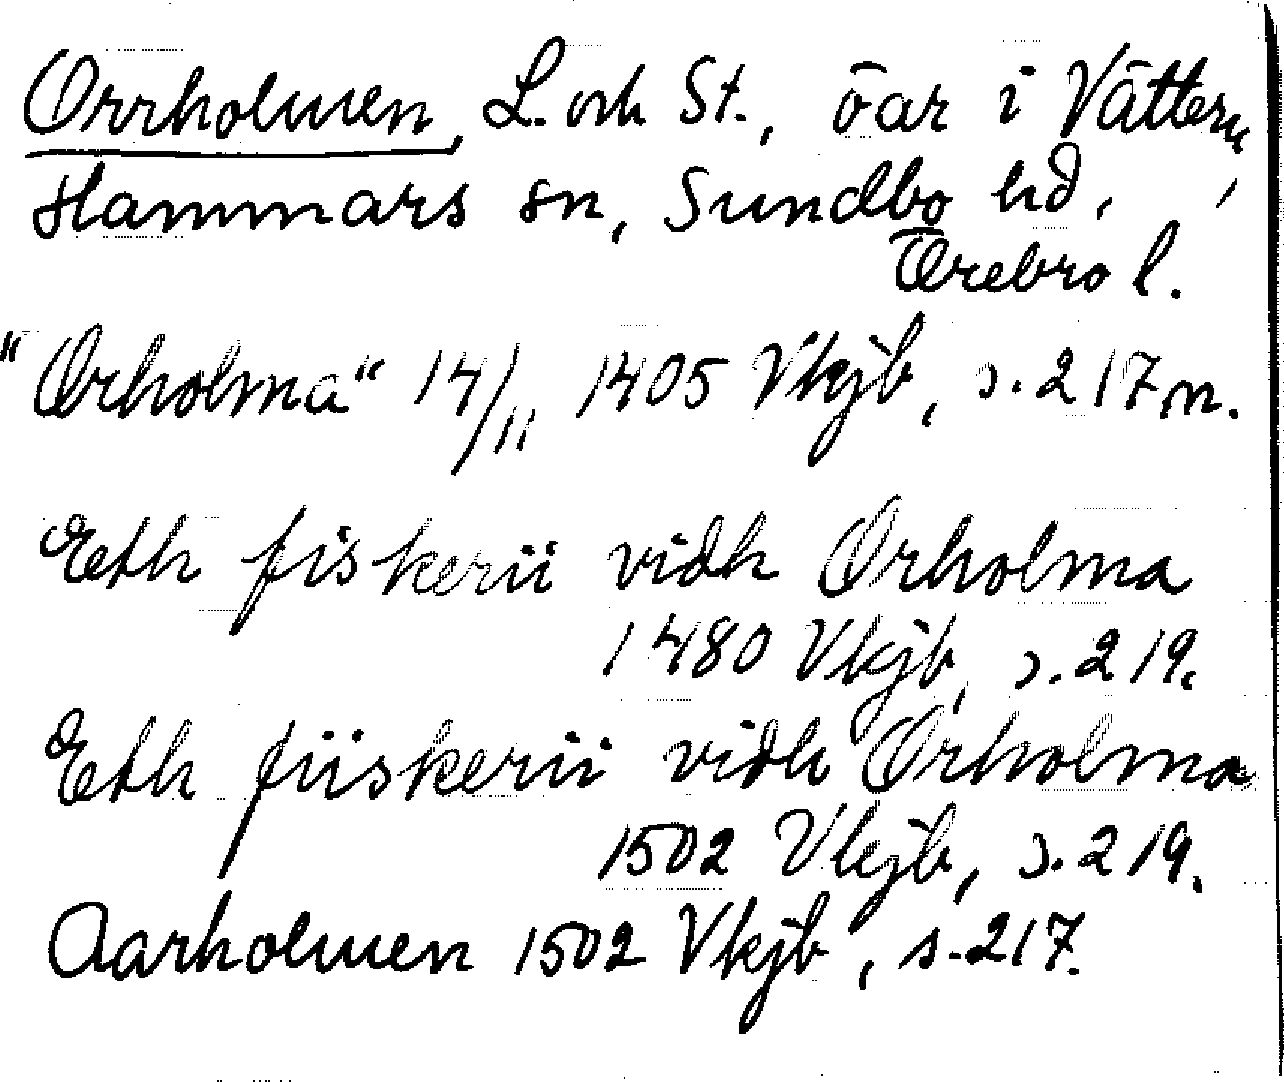 Orrholmen, L. och St., öar i Vättern,
Hammars sn, Sundbo hd,
Örebro l.
"Orholma" 14/11 1405 Vkjb, s. 217 m.
Eeth fiskerii vidh Orholma
1480 Vkjb, s. 219.
Eth fiiskerii vidh Orholma
1502 Vkjb, s. 219.
Aarholmen 1502 Vkjb, s. 217.